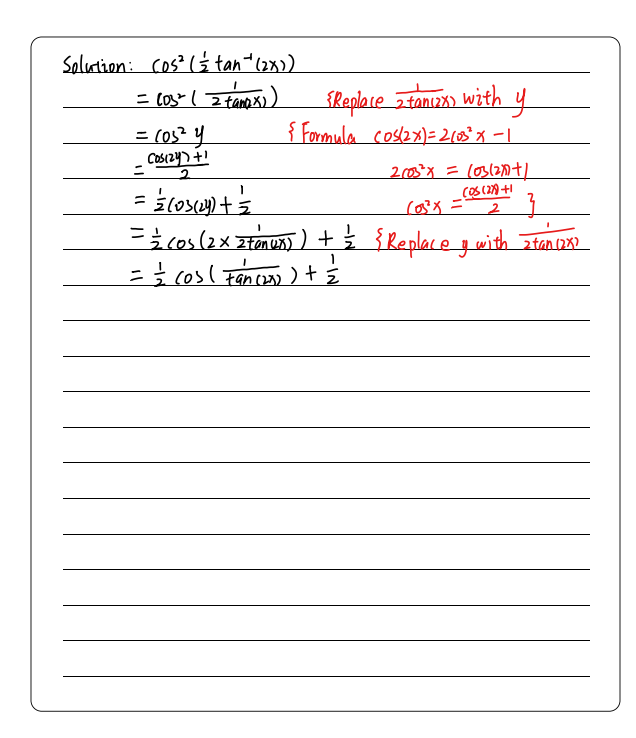 Solution: cos²(½ tan⁻¹(2x))
= cos²(1/(2tan(2x))) {Replace 1/(2tan(2x)) with y
= cos² y {Formula cos(2x)=2cos²x −1
= (cos(2y)+1)/2 2cos²x = cos(2x)+1
= ½cos(2y)+½ cos²x = (cos(2x)+1)/2 }
= ½cos(2×1/(2tan(2x))) + ½ {Replace y with 1/(2tan(2x))
= ½ cos(1/(tan(2x))) + ½